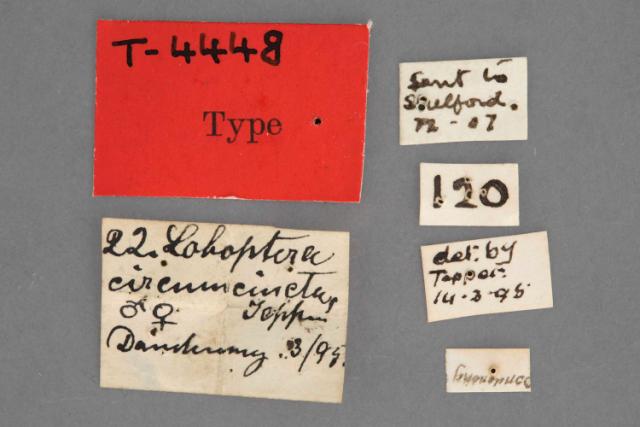 T-4448
Type
22. Loboptera
circumcincta,
♂ ♀ Tepper
Dandenong .3/95.
Sent to
Shelford.
12-07
120
det: by
Tepper.
14-3-95